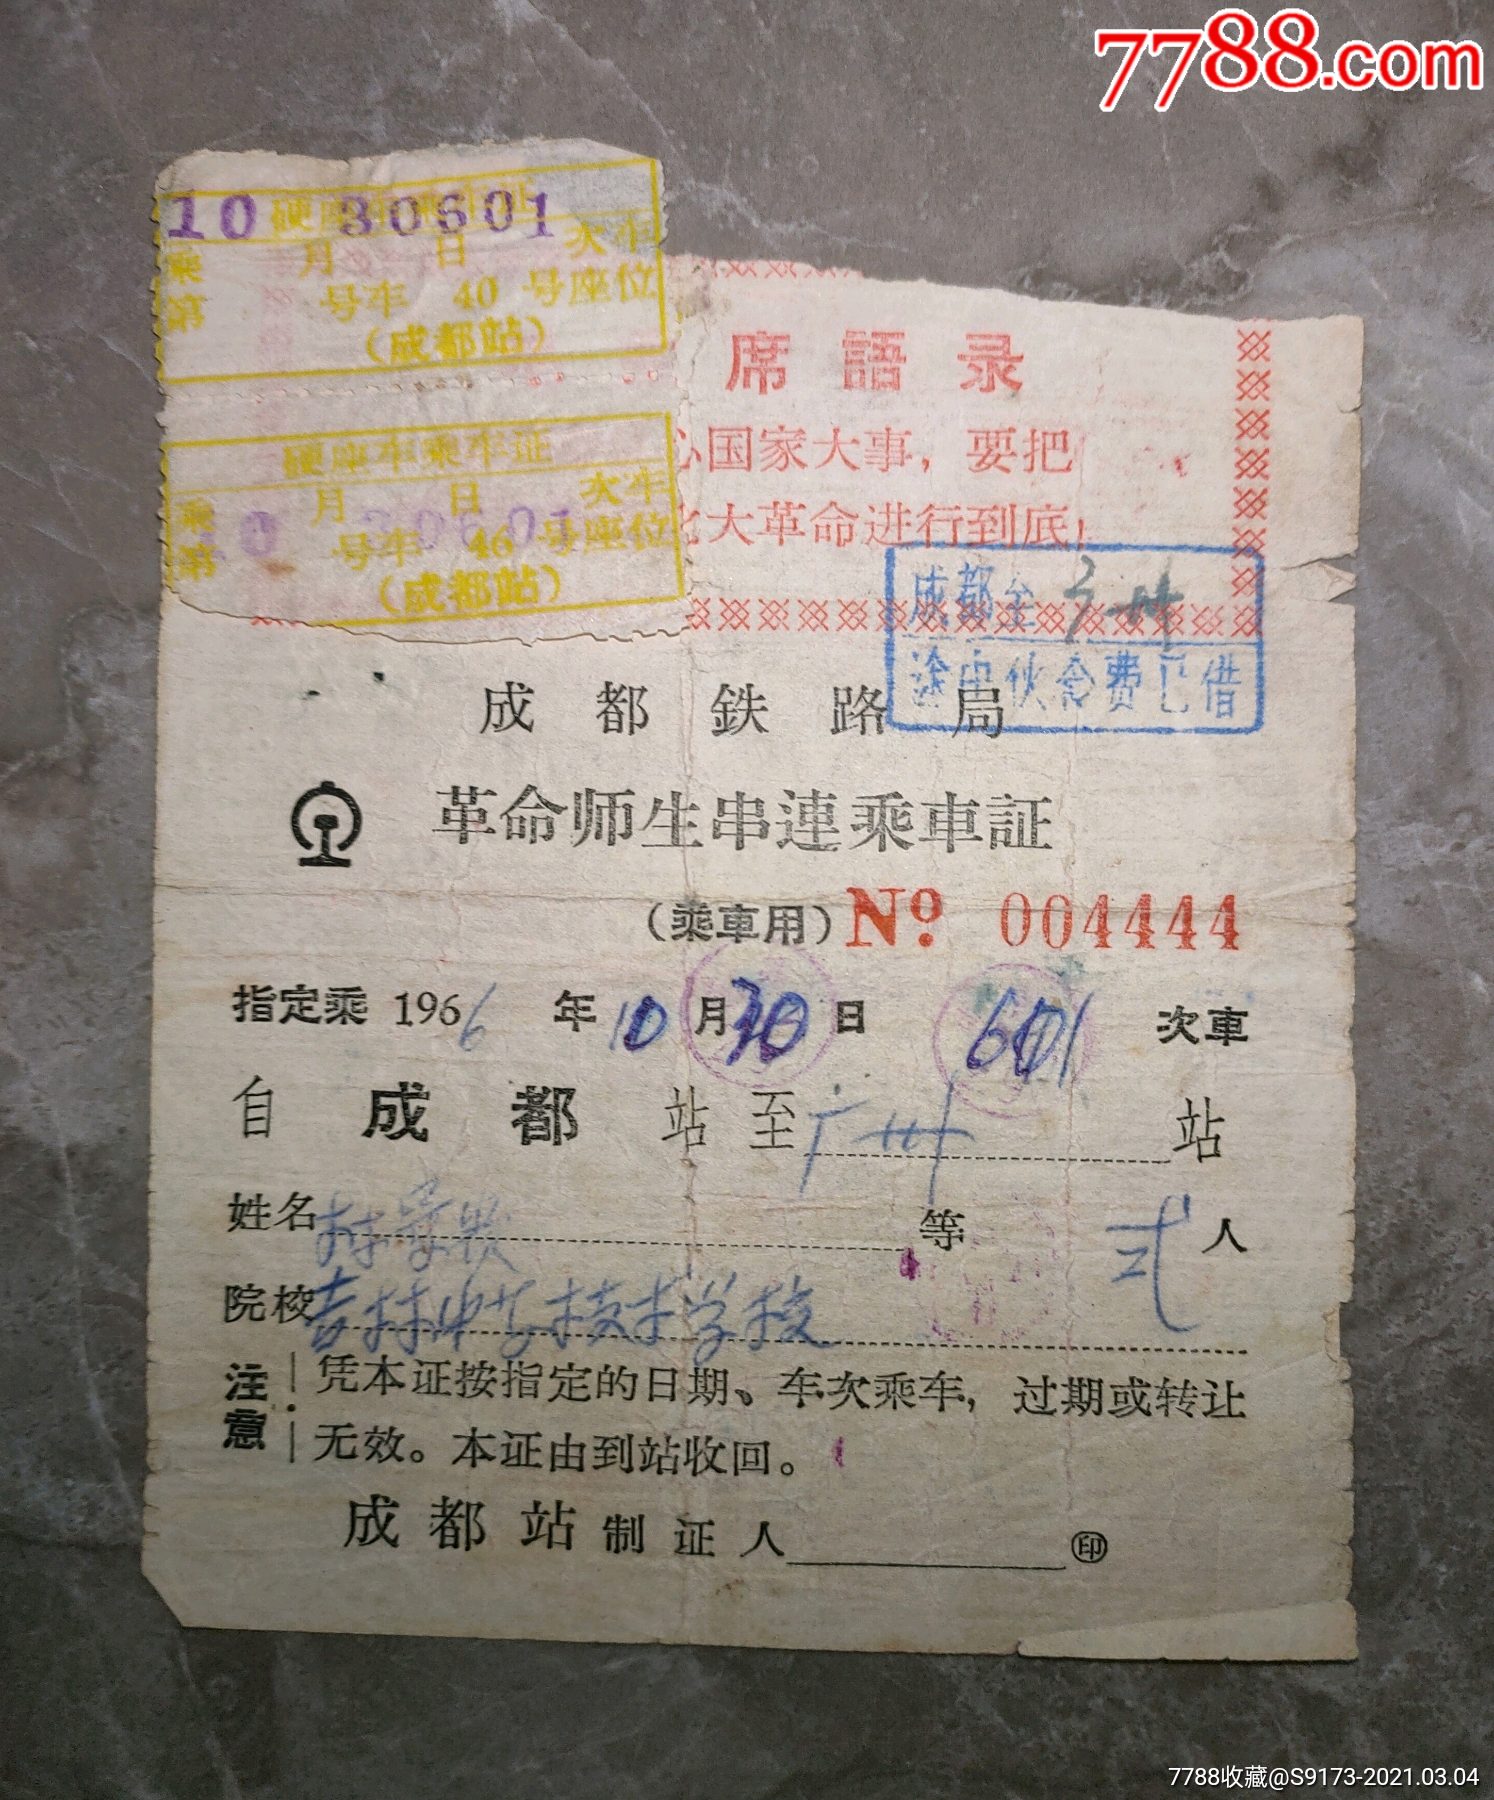 7788.com
硬座车乘车证
10 30601
乘 月 日 次车
第 号车 40 号座位
(成都站)
硬座车乘车证
乘 月 日 次车
10 30601
第 号车 46 号座位
(成都站)
席語录
心国家大事，要把
化大革命进行到底！
成都至广州
途中伙食费已借
成都鉄路局
革命师生串連乘車証
(乘車用) No. 004444
指定乘 1966 年 10 月 30 日 601 次車
自 成都 站至 广州 站
姓名 林 等 弍 人
院校 吉林 技术学校
注意 凭本证按指定的日期、车次乘车，过期或转让
无效。本证由到站收回。
成都站制证人 印
7788收藏@S9173-2021.03.04